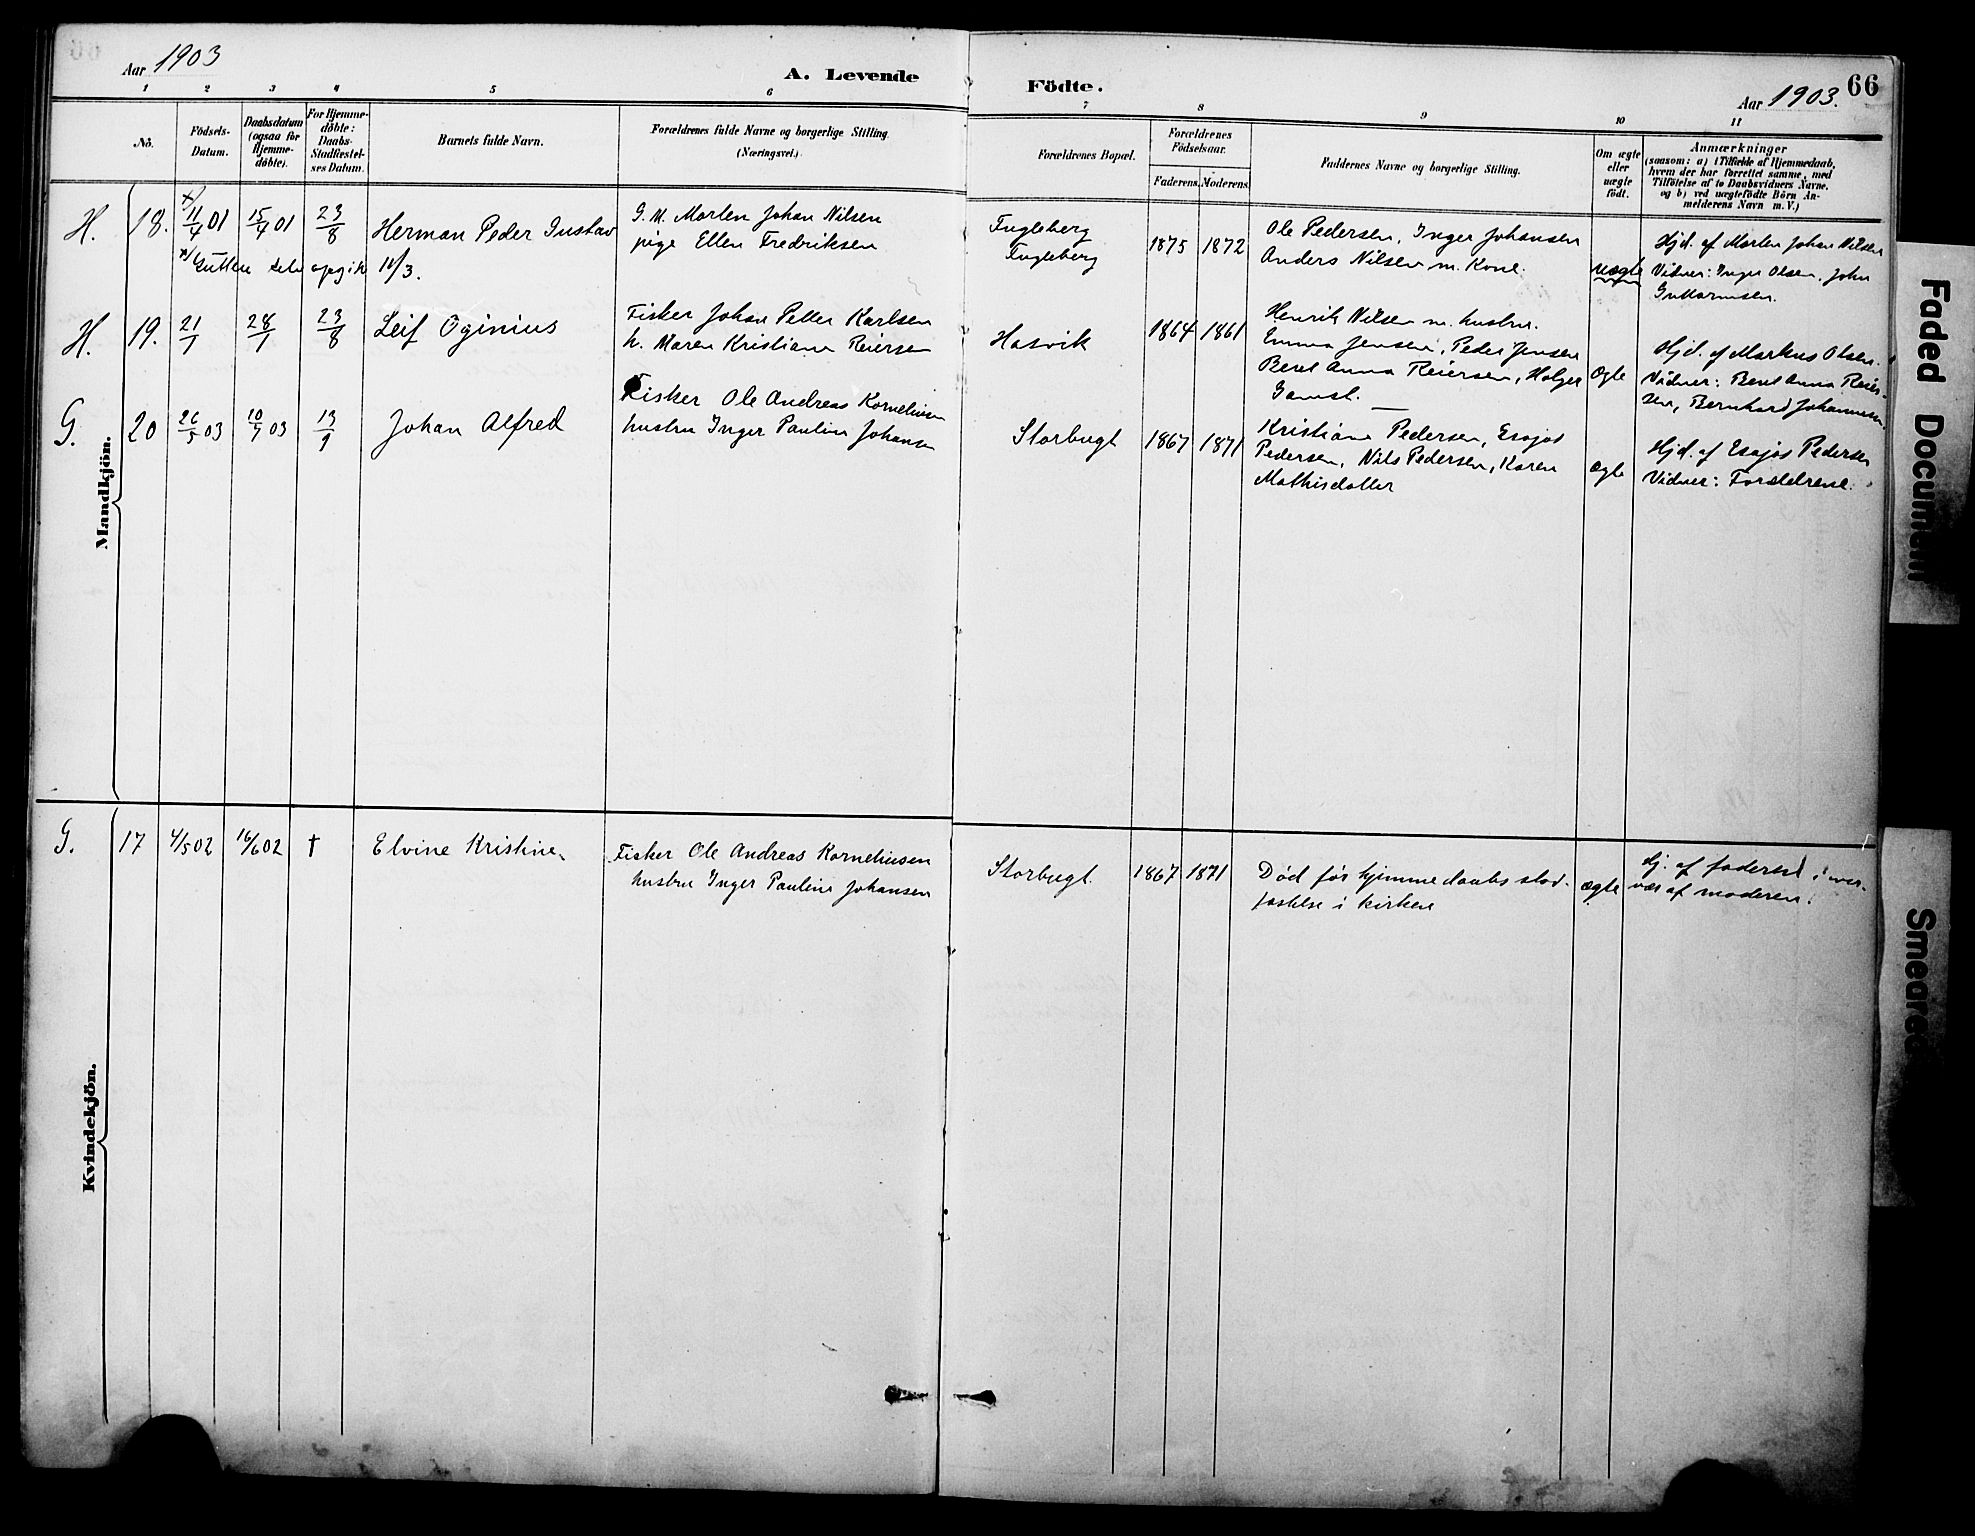 Aar 1903
A. Levende
Födte.
Aar 1903.
66
1 2 3 4 5 6 7 8 9 10 11
No.
Födsels-
Datum.
Daabsdatum
(ogsaa for
Hjemme-
döbte).
For Hjemme-
döbte:
Daabs-
Stadfæstel-
ses Datum.
Barnets fulde Navn.
Forældrenes fulde Navne og borgerlige Stilling.
(Næringsvei.)
Forældrenes Bopæl.
Forældrenes
Födselsaar.
Faderens. Moderens.
Faddernes Navne og borgerlige Stilling.
Om ægte
eller
uægte
födt.
Anmærkninger
(saasom: a) i Tilfælde af Hjemmedaab,
hvem der har forrettet samme, med
Tilföielse af to Daabsvidners Navne,
og b) ved uægtefödte Börn An-
melderens Navn m. V.)
Mandkjön.
H. 18. x) 11/4 01 15/4 01 23/8 Herman Peder Gustav
G. M. Morten Johan Nilsen
pige Ellen Fredriksen
Fugleberg
Fugleberg
1875 1872
Ole Pedersen, Inger Johansen
Anders Nilsen m. Kone.
uægte
Hjd. af Morten Johan Nilsen
Vidner: Inger Olsen, John
Guttormsen.
x) Gutten selv opgik 11/3.
H. 19. 21/1 28/1 23/8 Leif Oginius
Fisker Johan Petter Karlsen
h. Maren Kristiane Reiersen
Hasvik
1864 1861
Henrik Nilsen m. hustru.
Emma Jensen, Peder Jensen
Beret Anna Reiersen, Holger
Gamst.
ægte
Hjd. af Markus Olsen.
Vidner: Beret Anna Reier-
sen, Bernhard Johannesen
G. 20 26/5 03 10/7 03 13/9 Johan Alfred
Fisker Ole Andreas Korneliusen
hustru Inger Pauline Johansen
Storbugt
1867 1871
Kristiane Pedersen, Esajas
Pedersen, Nils Pedersen, Karen
Mathisdatter
ægte
Hjd. af Esajas Pedersen
Vidner: Forældrene.
Kvindekjön.
G. 17 4/5 02 16/6 02 † Elvine Kristine
Fisker Ole Andreas Korneliusen
hustru Inger Pauline Johansen
Storbugt.
1867 1871
Død før hjemmedaabs stad-
fæstelse i kirken
ægte
Hj. af faderen i over-
vær af moderen.
Faded Document
Smeared